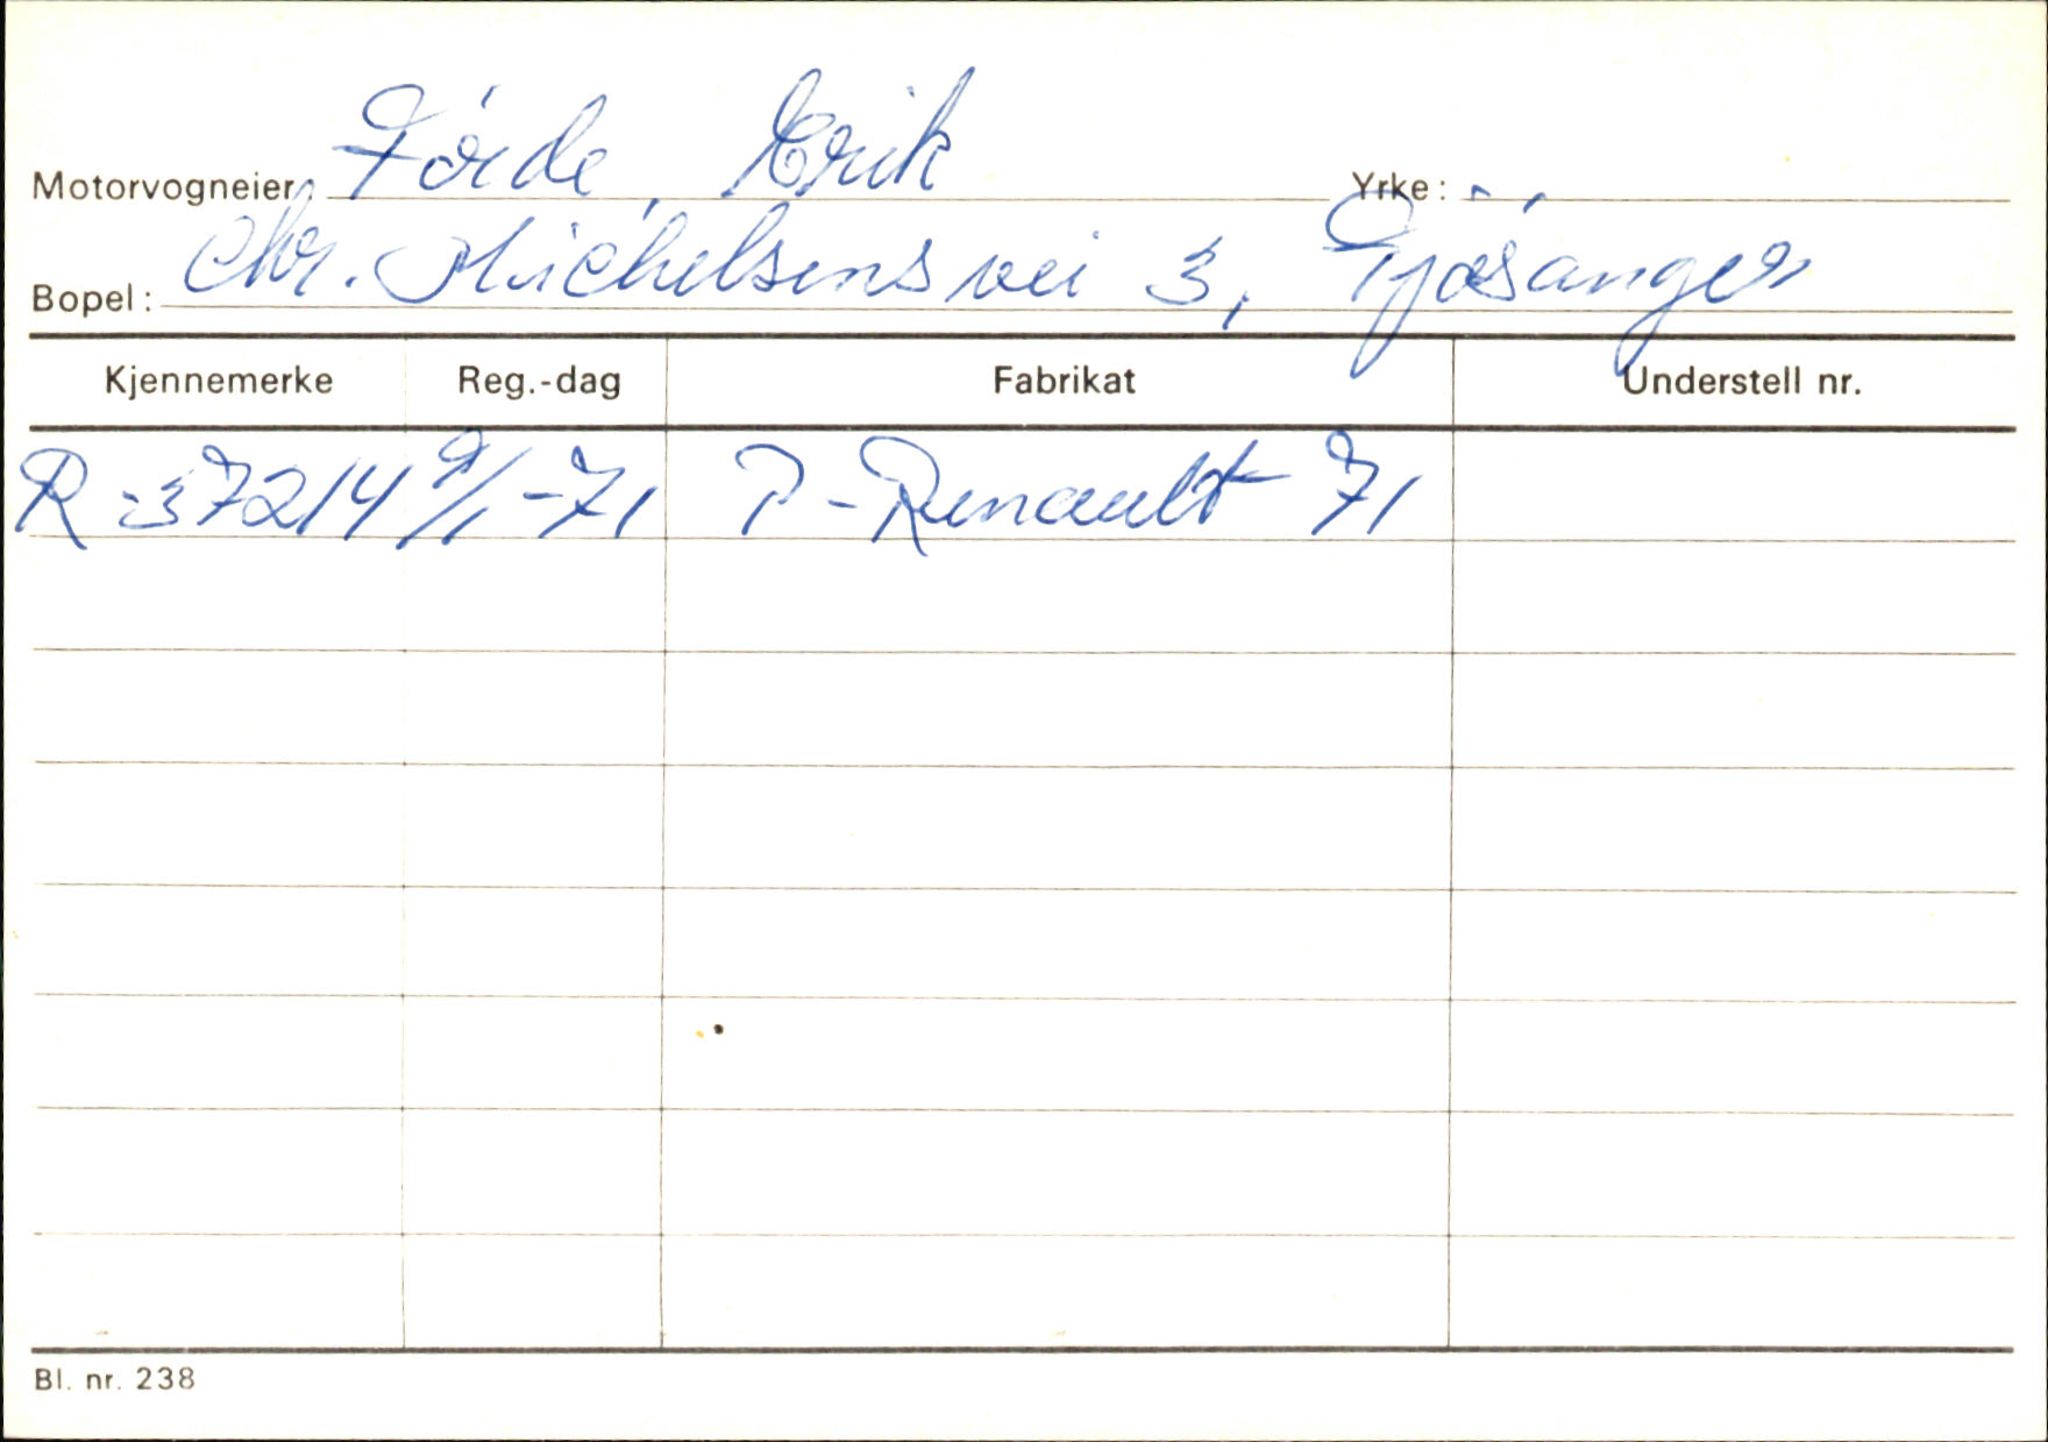 Motorvogneier: Förde, Erik Yrke:
Bopel: Chr. Michelsens vei 3, Fjøsanger
Kjennemerke Reg.-dag Fabrikat Understell nr.
R-37214 9/1-71 P-Renault 71
Bl. nr. 238